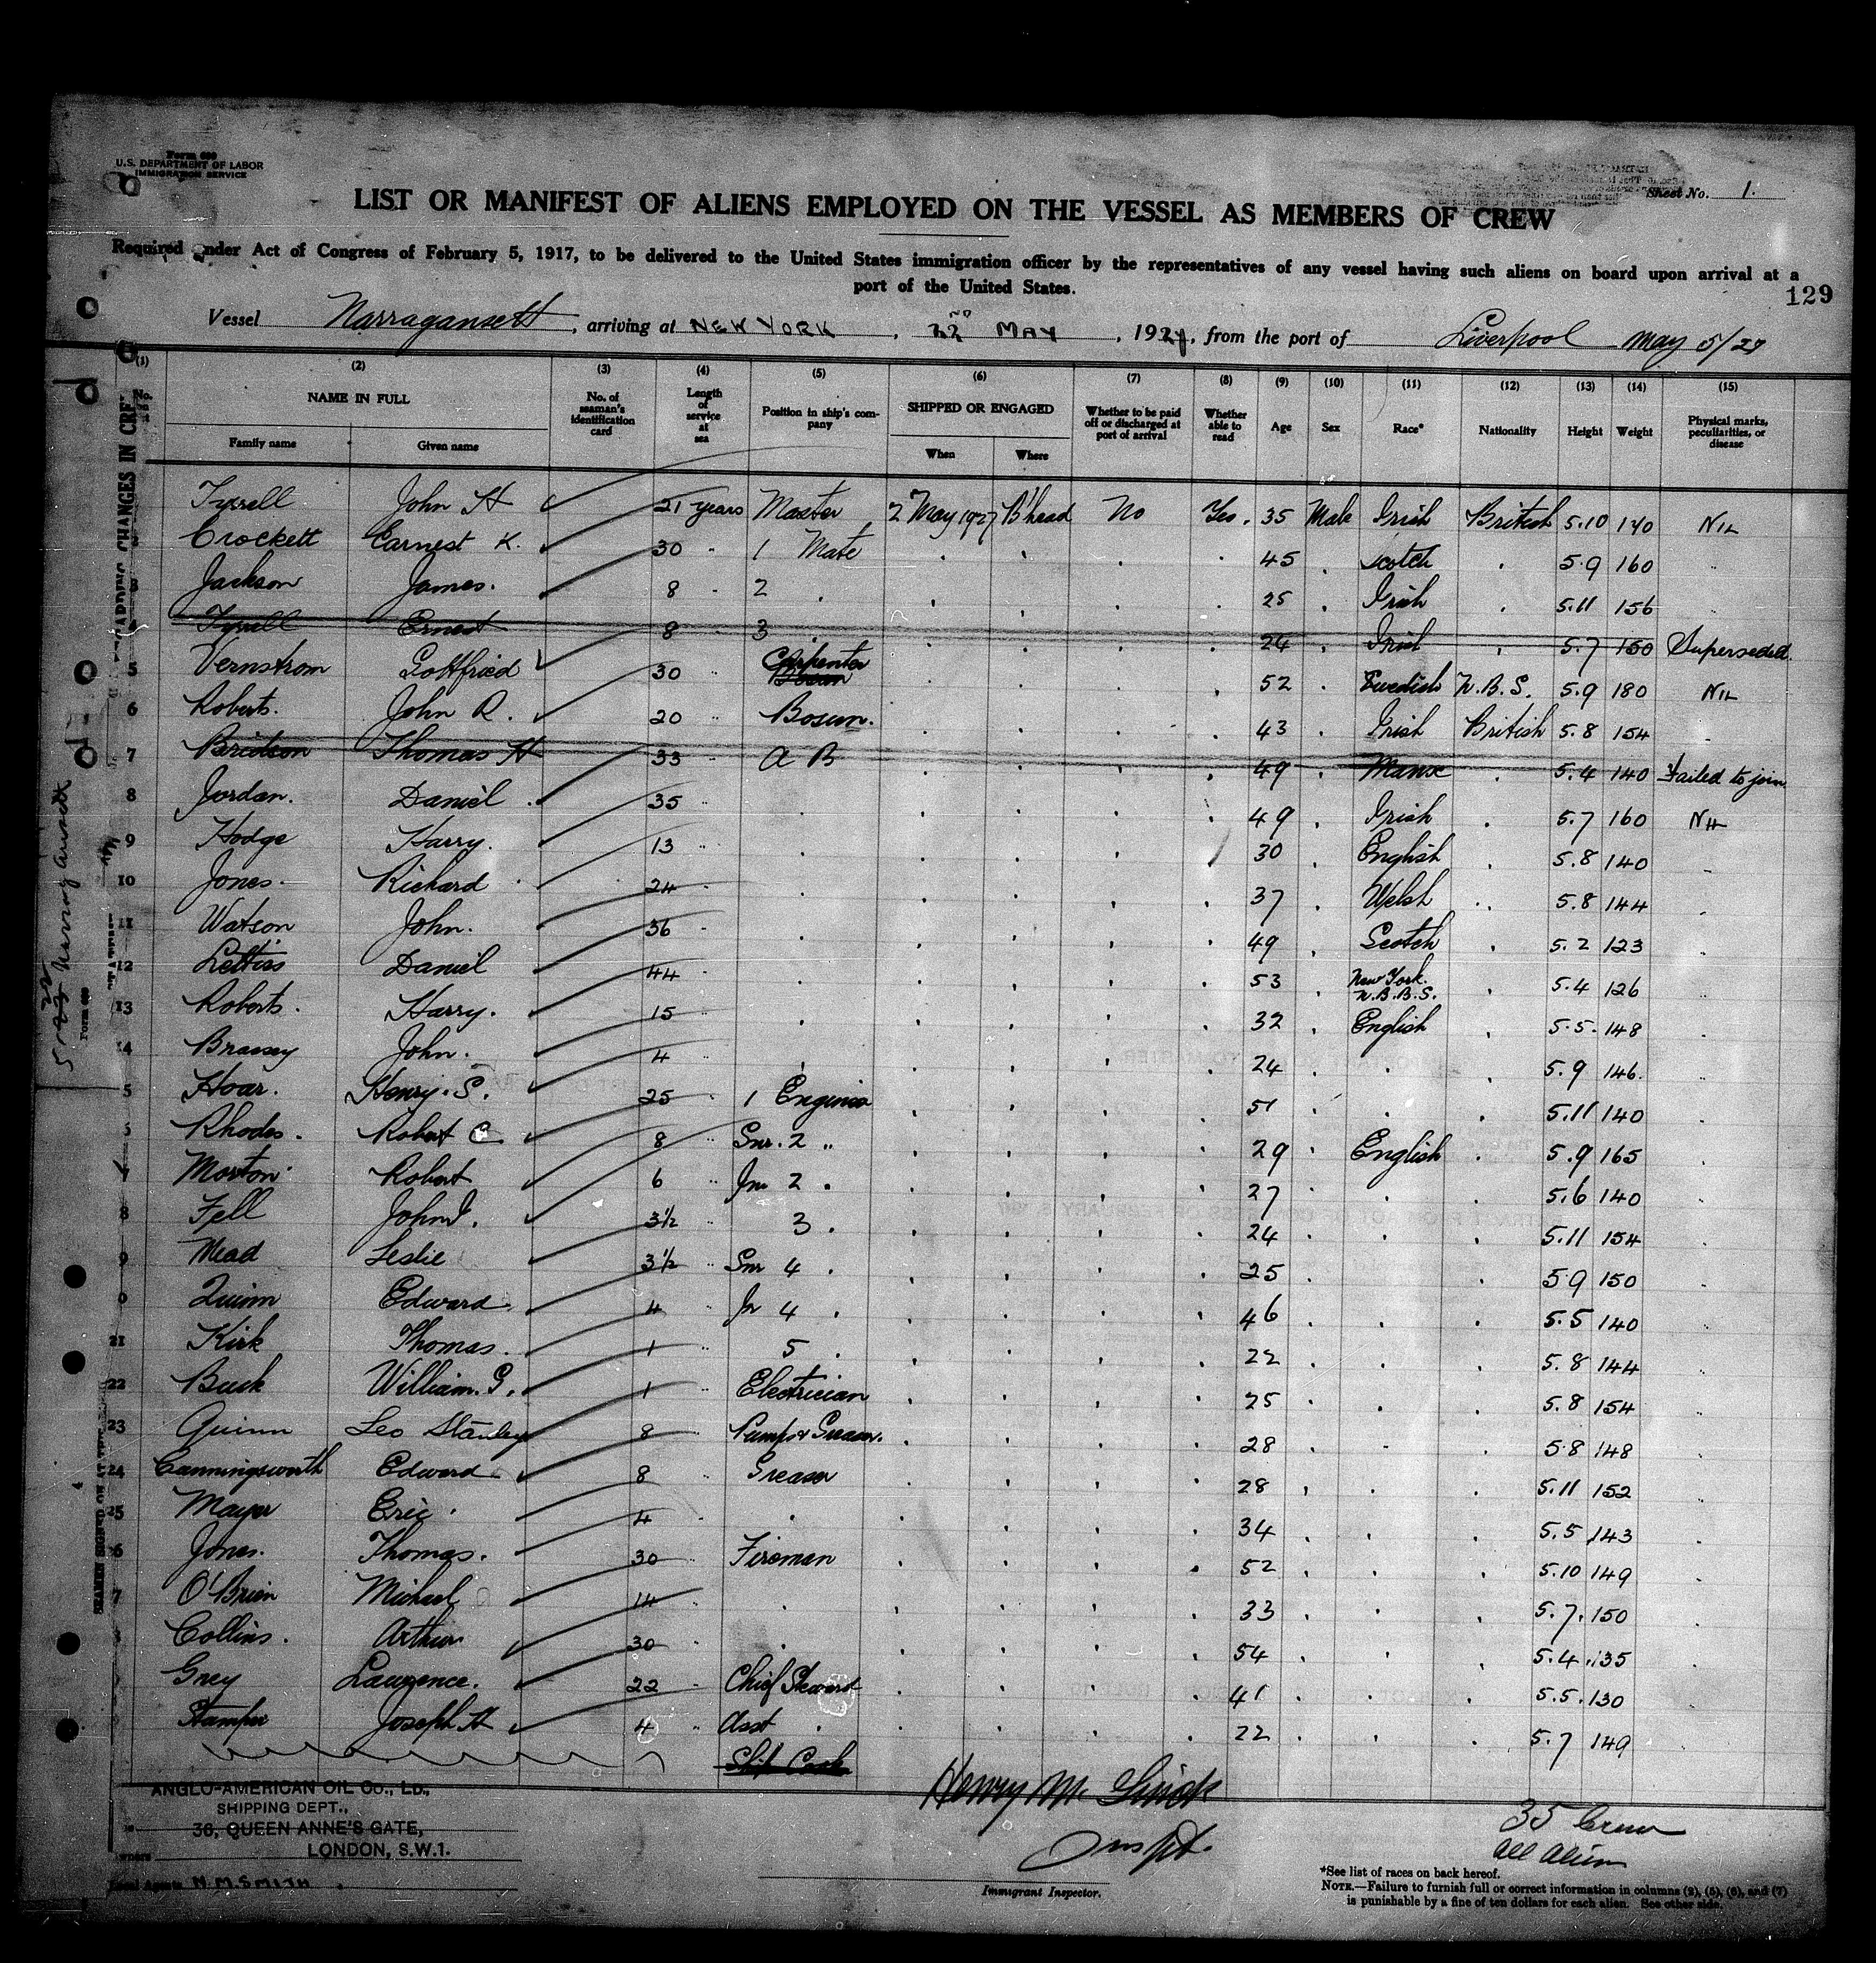 Form 689
U.S. DEPARTMENT OF LABOR
IMMIGRATION SERVICE
Sheet No. 1.
LIST OR MANIFEST OF ALIENS EMPLOYED ON THE VESSEL AS MEMBERS OF CREW
Required under Act of Congress of February 5, 1917, to be delivered to the United States immigration officer by the representatives of any vessel having such aliens on board upon arrival at a
port of the United States.
129
Vessel Narragansett, arriving at NEW YORK, 22ND MAY, 1927, from the port of Liverpool May 5/27
(1) (2) (3) (4) (5) (6) (7) (8) (9) (10) (11) (12) (13) (14) (15)
No. NAME IN FULL No. of seaman's identification card Length of service at sea Position in ship's company SHIPPED OR ENGAGED Whether to be paid off or discharged at port of arrival Whether able to read Age Sex Race* Nationality Height Weight Physical marks, peculiarities, or disease
Family name Given name When Where
Tyrrell John H 21 years Master 2 May 1927 B'head No Yes. 35 Male Irish British 5.10 140 NIL
Crockett Earnest K. 30 " 1 Mate 45 . Scotch . 5.9 160
3 Jackson James. 8 - 2 . 25 . Irish . 5.11 156
Tyrrell Ernest 8 3 . 24 Irish . 5.7 150 Superseded.
5 Vernstrom Gottfried 30 Carpenter Bosun 52 . Swedish N.B.S. 5.9 180 NIL
6 Roberts. John R. 20 " Bosun. 43 . Irish British 5.8 154
7 Bridson Thomas H 33 - A B 49 . Manx . 5.4 140 Failed to join
8 Jordan. Daniel 35 " 49 . Irish . 5.7 160 NIL
9 Hodge Harry. 13 " 30 . English . 5.8 140
10 Jones. Richard 24 - 37 . Welsh . 5.8 144
11 Watson John. 36 - 49 . Scotch . 5.2 123
12 Daniel 44 - 53 . New York. N.B.B.S. . 5.4 126
13 Roberts. Harry. 15 " 32 . English . 5.5. 148
14 Brassey John. 4 " 24 . . 5.9 146.
5 Hoar. Henry. S. 25 " 1 Engineer 51 . . 5.11 140
Rhodes. Robert C 8 " Snr. 2 " 29 . English . 5.9 165
7 Morton Robert 6 " Jnr 2 . 27 . . 5.6 140
8 Fell John I. 3½ " 3 . 24 . . 5.11 154
9 Mead Leslie 3½ " Snr 4 . 25 . . 5.9 150
0 Quinn Edward 4 " Jr 4 . 46 . . 5.5 140
21 Kirk Thomas. 1 " 5 . 22 . . 5.8 144
22 Buck William. G. 1 " Electrician 25 . . 5.8 154
23 Quinn Leo Stanley 8 " Pump & Greaser. 28 . . 5.8 148
24 Canningsworth Edward 8 " Greaser 28 . . 5.11 152
25 Mayer Eric 4 - . 34 . . 5.5 143
26 Jones. Thomas. 30 Fireman 52 . . 5.10 149
7 O'Brien Michael 14 . 33 . . 5.7. 150
Collins. Arthur 30 . 54 . . 5.4. 135
Grey Lawrence. 22 - Chief Steward 41 . . 5.5. 130
Stamper Joseph H 4 " Asst . 22 . . 5.7 149
Ship Cook
ANGLO-AMERICAN OIL Co., LD.,
SHIPPING DEPT.,
36, QUEEN ANNE'S GATE,
LONDON, S.W.1.
Owners
Local Agents N.M.SMITH
Inspt.
Immigrant Inspector.
35 Crew
All Alien
*See list of races on back hereof.
NOTE.—Failure to furnish full or correct information in columns (2), (5), (6), and (7)
is punishable by a fine of ten dollars for each alien. See other side.